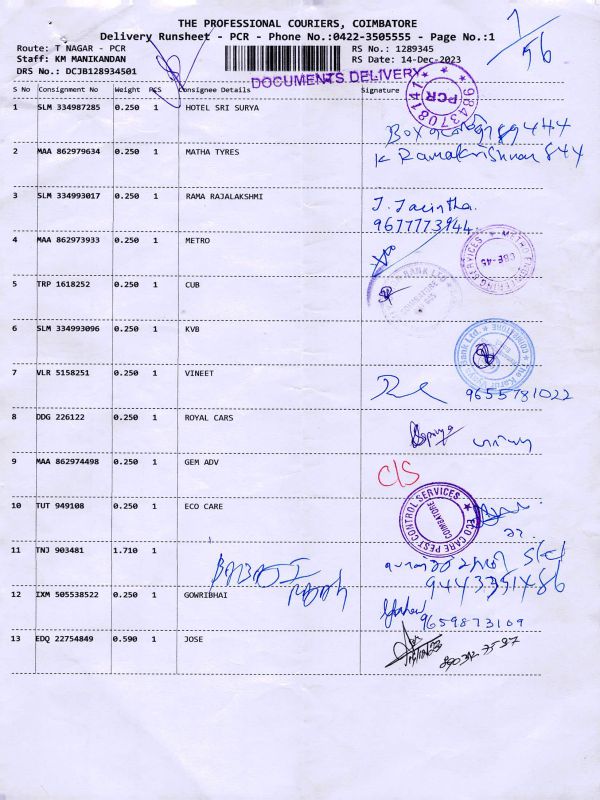 THE PROFESSIONAL COURIERS, COIMBATORE
Delivery Runsheet - PCR - Phone No.:0422-3505555 - Page No.:1
Route: T NAGAR - PCR RS No.: 1289345
Staff: KM MANIKANDAN RS Date: 14-Dec-2023
DRS No.: DCJB128934501
1/56
DOCUMENTS DELIVERY
PCR
9843708141
S No Consignment No Weight PCS Consignee Details Signature
1 SLM 334987285 0.250 1 HOTEL SRI SURYA
Box 89444
2 MAA 862979634 0.250 1 MATHA TYRES
K Ramakrishnan 844
3 SLM 334993017 0.250 1 RAMA RAJALAKSHMI J. Jacintha.
9677773944
4 MAA 862973933 0.250 1 METRO
METRO ENGINEERING SERVICES CBE-45
5 TRP 1618252 0.250 1 CUB
BANK LTD
6 SLM 334993096 0.250 1 KVB
The Karur Vysya Bank Ltd. COIMBATORE
7 VLR 5158251 0.250 1 VINEET
9655731022
8 DDG 226122 0.250 1 ROYAL CARS
9 MAA 862974498 0.250 1 GEM ADV C/S
10 TUT 949108 0.250 1 ECO CARE
ECO CARE PEST CONTROL SERVICES COIMBATORE
11 TNJ 903481 1.710 1
9443351486
12 IXM 505538522 0.250 1 GOWRIBHAI
9659873109
13 EDQ 22754849 0.590 1 JOSE